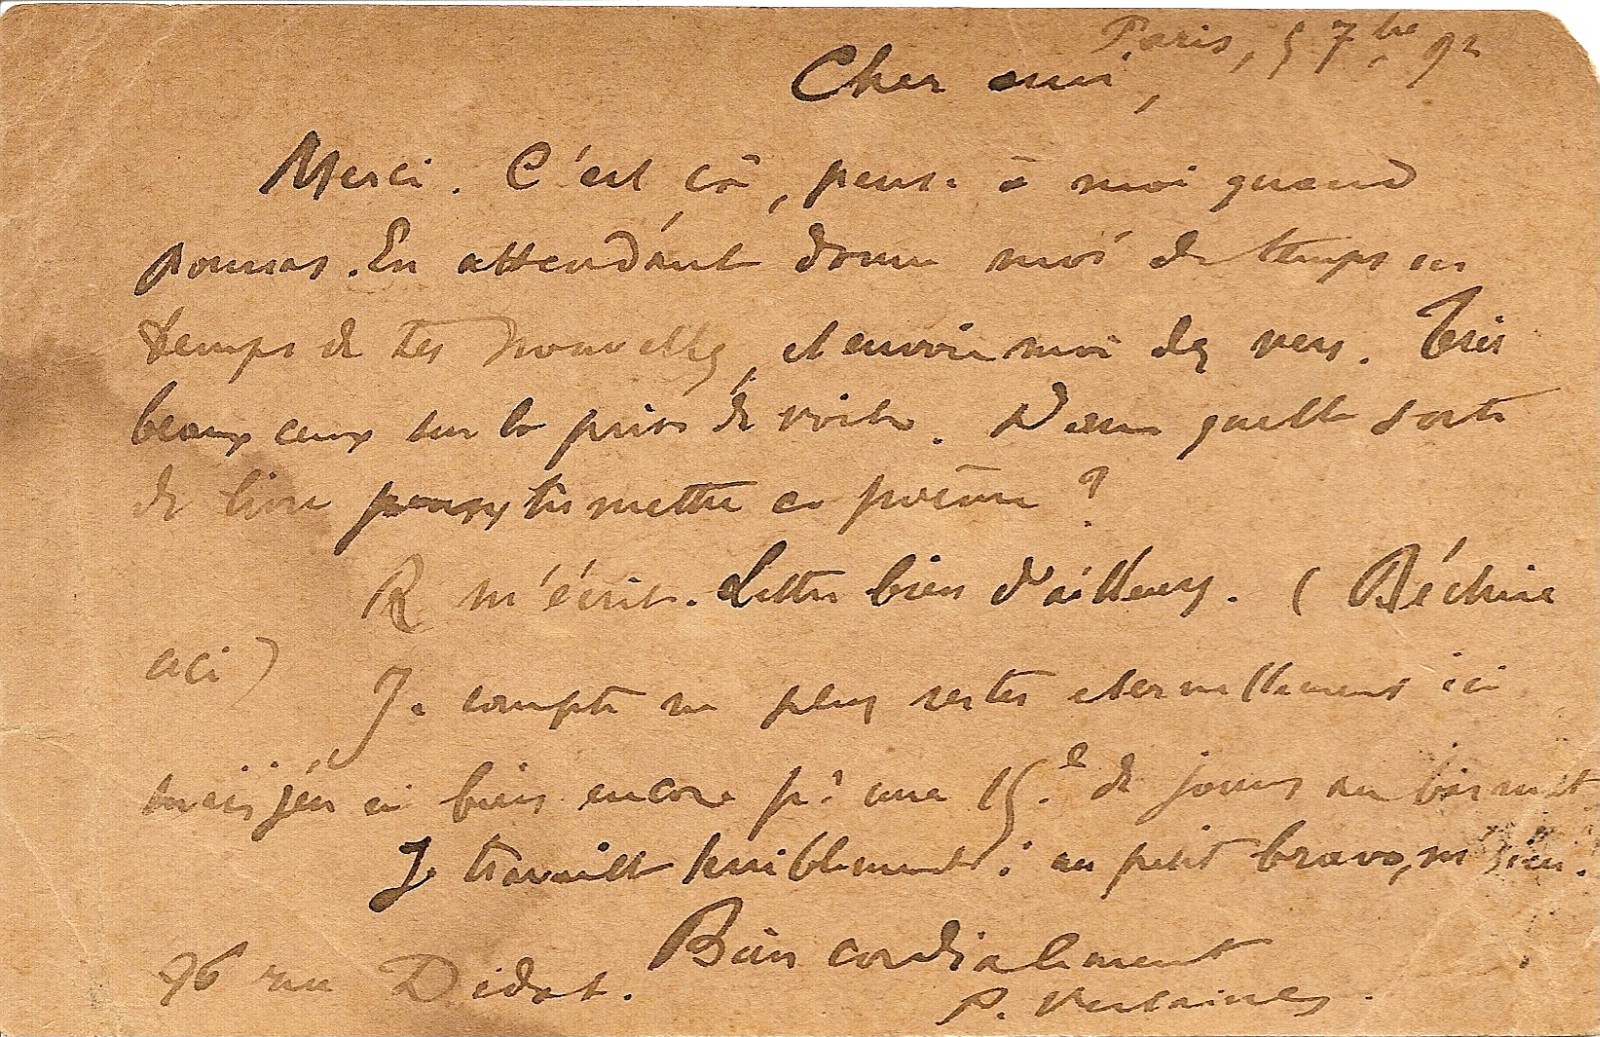 Paris, 5 7bre 92
Cher ami,
Merci. C'est çà, pense à moi quand
pourras. En attendant donne moi de temps en
temps de tes nouvelles, et envoie moi des vers. Très
beaux ceux sur la prise de voile. Dans quelle sorte
de livre penses tu mettre ce poème ?
R m'écrit. Lettre bien d'ailleurs. ( Déchire
ceci )
Je compte ne plus rester eternellement ici
mais j'en ai bien encore pr une 15e de jours au bas mot
Je travaille terriblement : un petit bravo, m sieu.
Bien cordialement
96 rue Didot. P. Verlaine